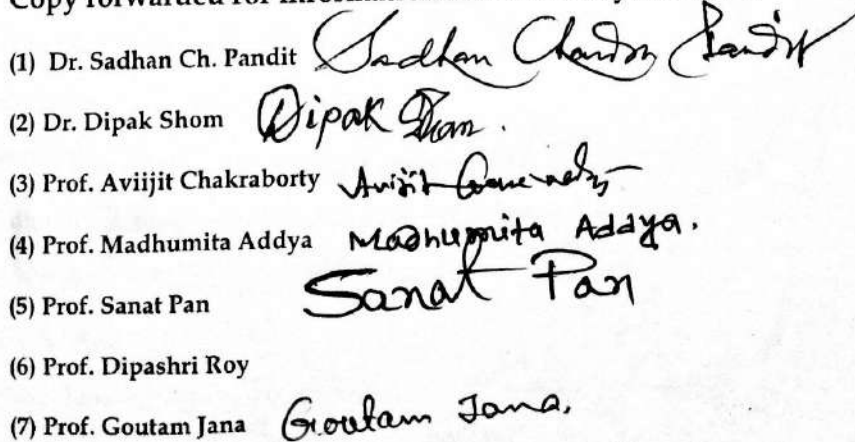 Copy forwarded for information
(1) Dr. Sadhan Ch. Pandit Sadhan Chandra Pandit
(2) Dr. Dipak Shom Dipak Shom.
(3) Prof. Aviijit Chakraborty Avijit
(4) Prof. Madhumita Addya Madhumita Addya.
(5) Prof. Sanat Pan Sanat Pan
(6) Prof. Dipashri Roy
(7) Prof. Goutam Jana Goutam Jana.